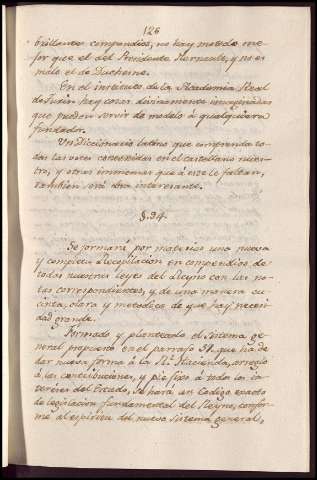 126
brillantes compendios, no hay metodo me-
jor que el del Presidente Hernault, y no es
malo el de Duchesne.
En el instituto de la Academia Real
de Turin hay cosas divinamente imaginadas
que pueden servir de modelo à qualquiera
fundador.
Un Diccionario latino que comprenda to-
das las voces contenidas en el castellano nues-
tro, y otras inmensas que à este le faltan,
tambien será obra interesante.
§. 94.
Se formará por materias una nueva
y completa Recopilacion en compendios de
todas nuestras leyes del Reyno con las no-
tas correspondientes, y de una manera su-
cinta, clara y metodica de que hay necesi-
dad grande.
Formado y planteado el Sistema ge-
neral propuesto en el parrafo 51. que ha de
dar nueva forma à la Rl. Hacienda, arreglo
à las contribuciones, y pie fixo à todos los in-
tereses del Estado, se hará un Codigo exacto
de legislacion fundamental del Reyno, confor-
me al espiritu del nuevo sistema general,